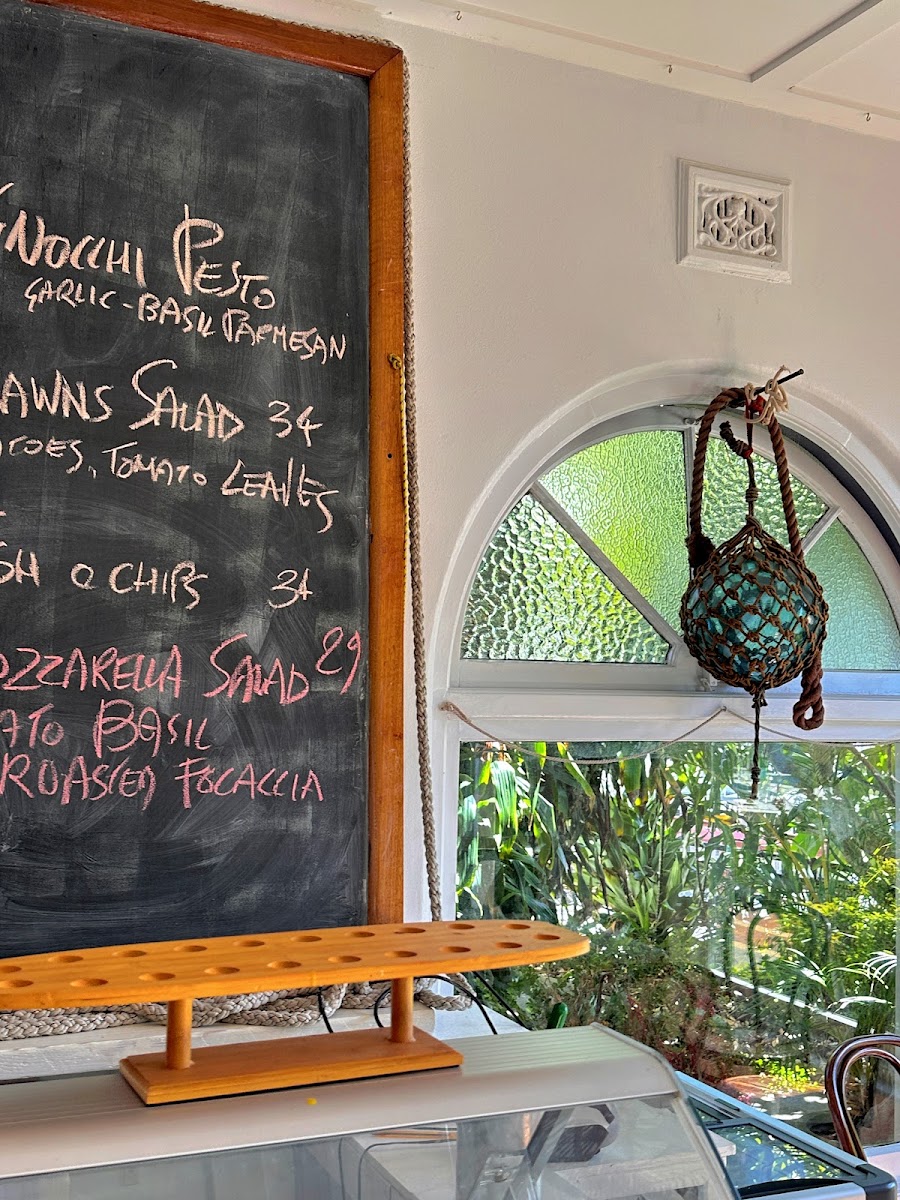 GNOCCHI PESTO
GARLIC-BASIL PARMESAN
AWNS SALAD 34
TOES, TOMATO LEAVES
SH & CHIPS 34
OZZARELLA SALAD 29
ATO BASIL
ROASTED FOCACCIA